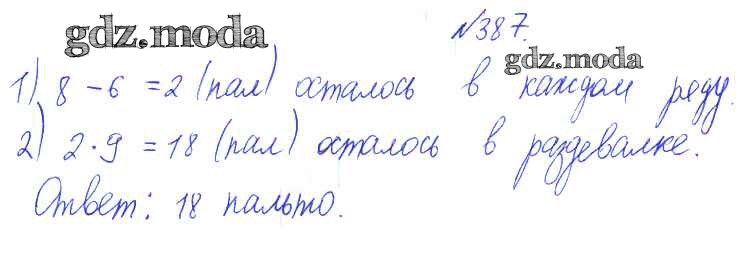 №387.
gdz.moda
gdz.moda
1) 8 - 6 = 2 (пал) осталось в каждом ряду.
2) 2 · 9 = 18 (пал) осталось в раздевалке.
Ответ: 18 пальто.